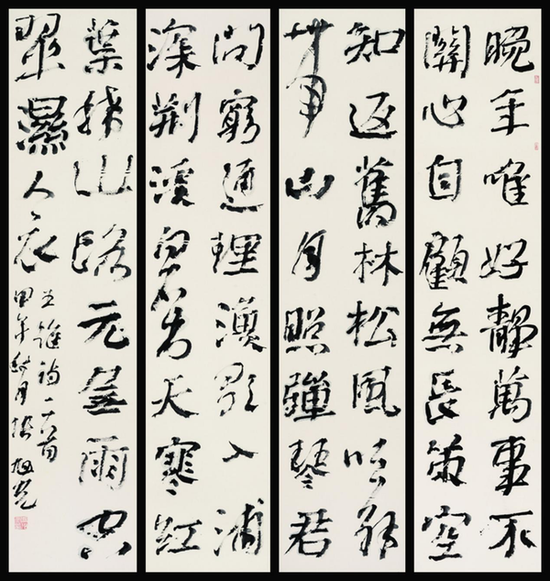 晚年唯好靜萬事不
關心自顧無長策空
知返舊林松風吹解
帶山月照彈琴君
問窮通理漁歌入浦
深荆溪白石出天寒紅
葉稀山路元無雨空
翠濕人衣
王維詩二首
甲午秋月張旭光